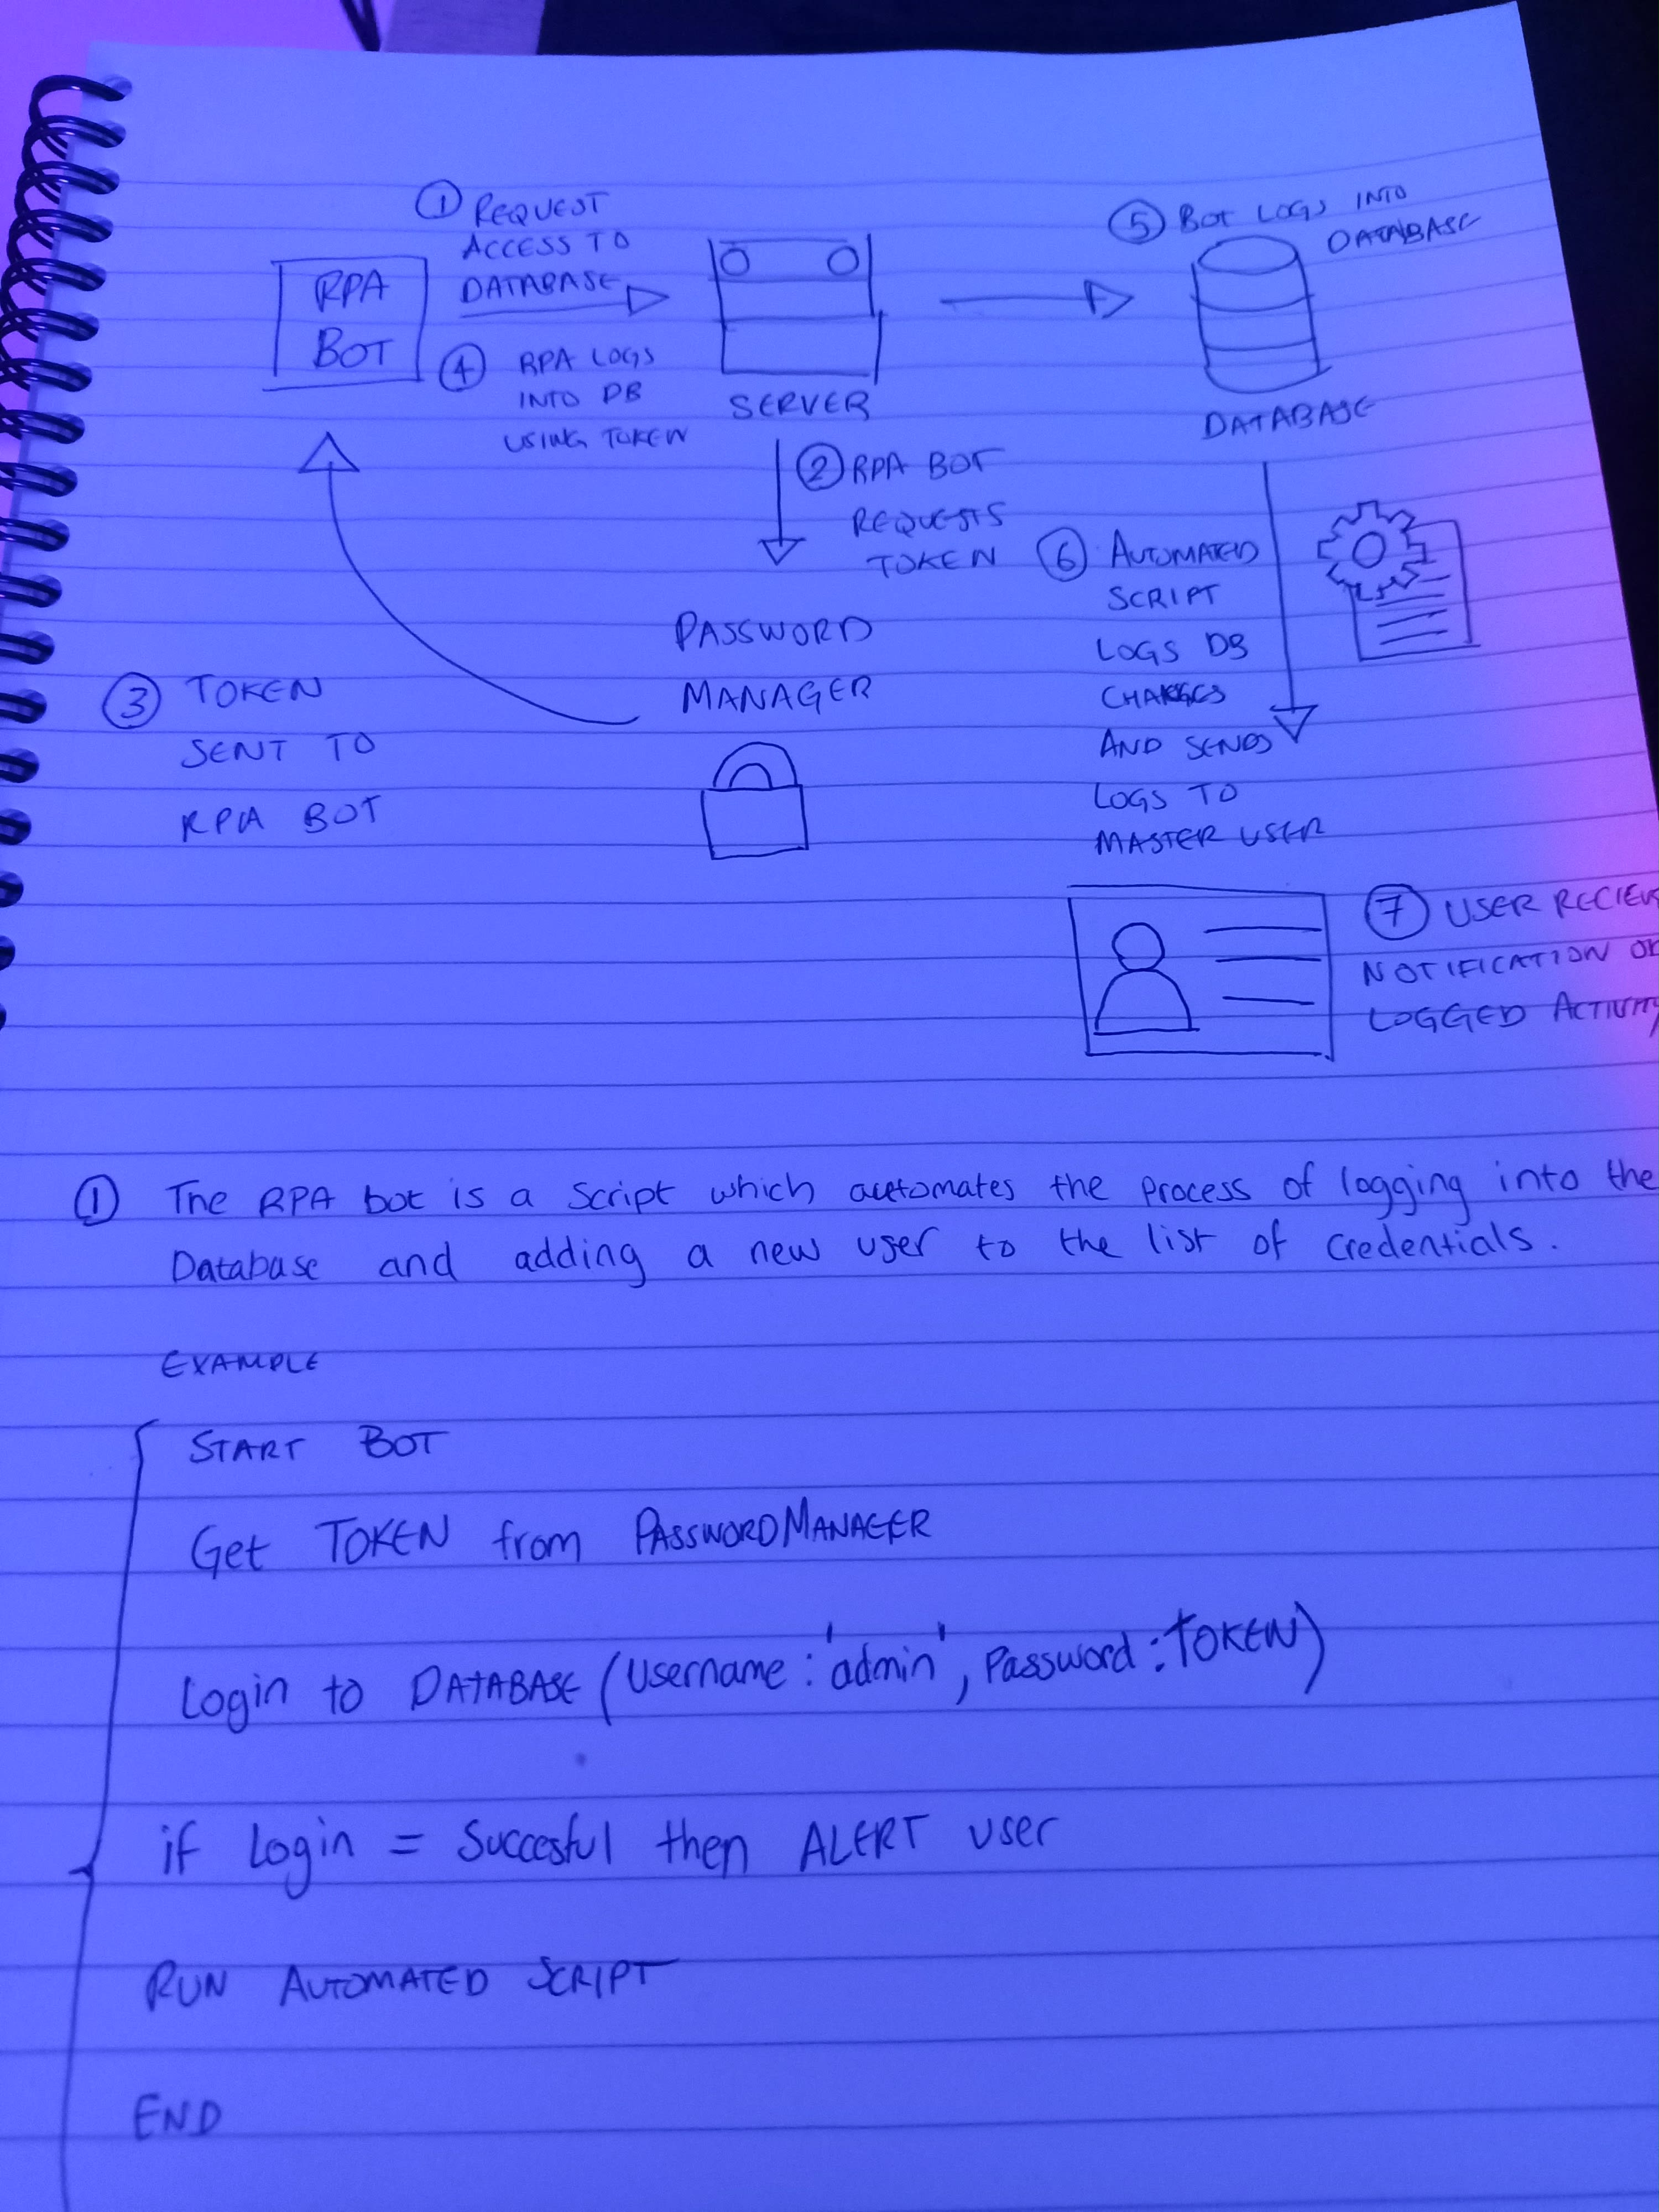 ① REQUEST
ACCESS TO
DATABASE
RPA
BOT
④ RPA LOGS
INTO DB
USING TOKEN
SERVER
⑤ BOT LOGS INTO
DATABASE
DATABASE
② RPA BOT
REQUESTS
TOKEN
PASSWORD
MANAGER
③ TOKEN
SENT TO
RPA BOT
⑥ AUTOMATED
SCRIPT
LOGS DB
CHANGES
AND SENDS
LOGS TO
MASTER USER
⑦ USER RECIEV
NOTIFICATION OF
LOGGED ACTIVITY
① The RPA bot is a script which automates the process of logging into the
Database and adding a new user to the list of credentials.
EXAMPLE
START BOT
Get TOKEN from PASSWORDMANAGER
Login to DATABASE (Username : 'admin', Password : TOKEN)
if Login = Succesful then ALERT user
RUN AUTOMATED SCRIPT
END